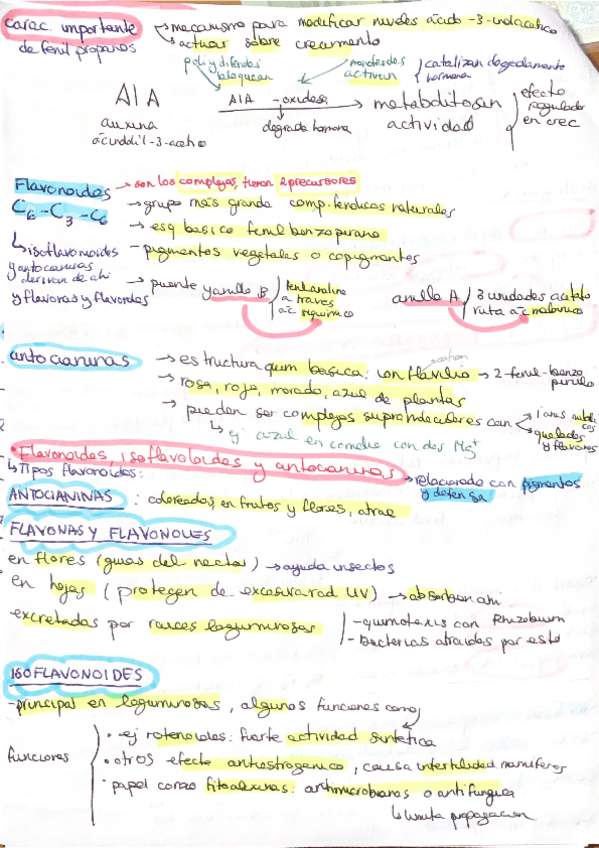 carac. importante → mecanismo para modificar niveles ácido-3-indolacético
de fenil propanos → actuar sobre crecimiento
poli y difenoles bloquean
monofenoles activan
catalizan degradamento hormona
AIA
AIA - oxidasa → metabolitos sin actividad
efecto regulador en crec
auxina
degrada hormona
Flavonoides → son los complejos, tienen 2 precursores
C6-C3-C6 → grupo más grande comp. fenólicos naturales
→ esq basico fenil benzopirano
↳ isoflavonoides - pigmentos vegetales o copigmentos
y antocianinas derivan de ahi
y flavonas y flavonoles
→ puente y anillo B
fenilalanina a través ac siquimico
anillo A
3 unidades acetato ruta ac malonico
antocianinas → estructura quim basica: ion flavilio → 2-fenil-benzo pirilio
cation
→ rosa, rojo, morado, azul de plantas
→ pueden ser complejos supramoleculares con
iones
quelados y flavones
↳ ej azul en con dos Mg+
• Flavonoides, isoflavoloides y antocianinas → relacionado con pigmentos y defensa
↳ Tipos flavonoides:
ANTOCIANINAS : coloreados, en frutos y flores, atrae
FLAVONAS Y FLAVONOLES
en flores (guias del nectar) → ayuda insectos
en hojas (protegen de excesiva rad UV) → absorben ahi
excretadas por raices leguminosas
- quimiotaxis con Rhizobium
- bacterias atraidas por esto
ISOFLAVONOIDES
- principal en leguminosas, algunos funciones como
funciones
• ej rotenoides: fuerte actividad
• otros efecto antiestrogenico, causa infertilidad mamiferos
• papel como fitoalexinas: antimicrobianos o antifungica
↳ limita propagacion